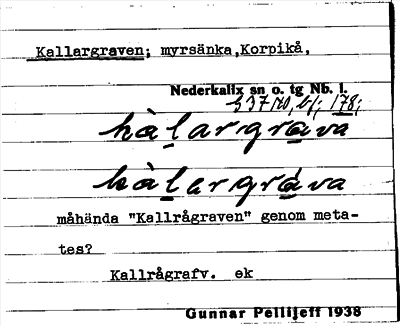 Kallargraven; myrsänka, Korpikå,
Nederkalix sn o. tg Nb. l.
178;
hàḷargrạ̊va
hàḷargrạ́va
måhända "Kallrågraven" genom meta-
tes?
Kallrågrafv. ek
Gunnar Pellijeff 1938